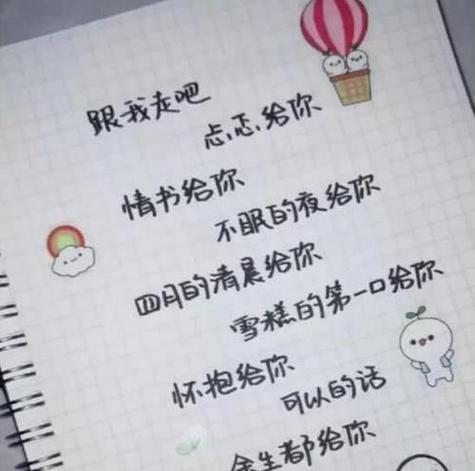 跟我走吧
忐忑给你
情书给你
不眠的夜给你
四月的清晨给你
雪糕的第一口给你
怀抱给你
可以的话
余生都给你